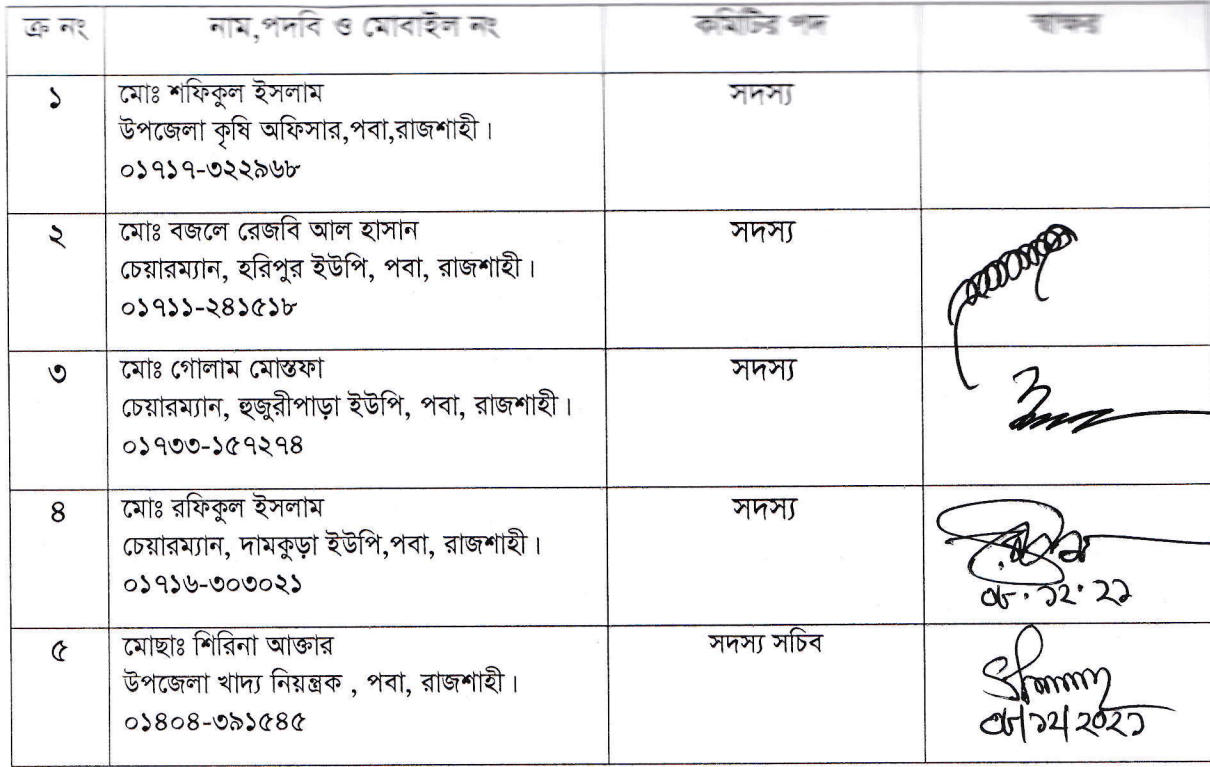 ক্র নং নাম,পদবি ও মোবাইল নং কমিটির পদ স্বাক্ষর
১ মোঃ শফিকুল ইসলাম সদস্য
উপজেলা কৃষি অফিসার,পবা,রাজশাহী।
০১৭১৭-৩২২৯৬৮
২ মোঃ বজলে রেজবি আল হাসান সদস্য
চেয়ারম্যান, হরিপুর ইউপি, পবা, রাজশাহী।
০১৭১১-২৪১৫১৮
৩ মোঃ গোলাম মোস্তফা সদস্য
চেয়ারম্যান, হুজুরীপাড়া ইউপি, পবা, রাজশাহী।
০১৭৩৩-১৫৭২৭৪
৪ মোঃ রফিকুল ইসলাম সদস্য
চেয়ারম্যান, দামকুড়া ইউপি,পবা, রাজশাহী।
০১৭১৬-৩০৩০২১
০৮.১২.২১
৫ মোছাঃ শিরিনা আক্তার সদস্য সচিব
উপজেলা খাদ্য নিয়ন্ত্রক , পবা, রাজশাহী।
০১৪০৪-৩৯১৫৪৫
০৮/১২/২০২১